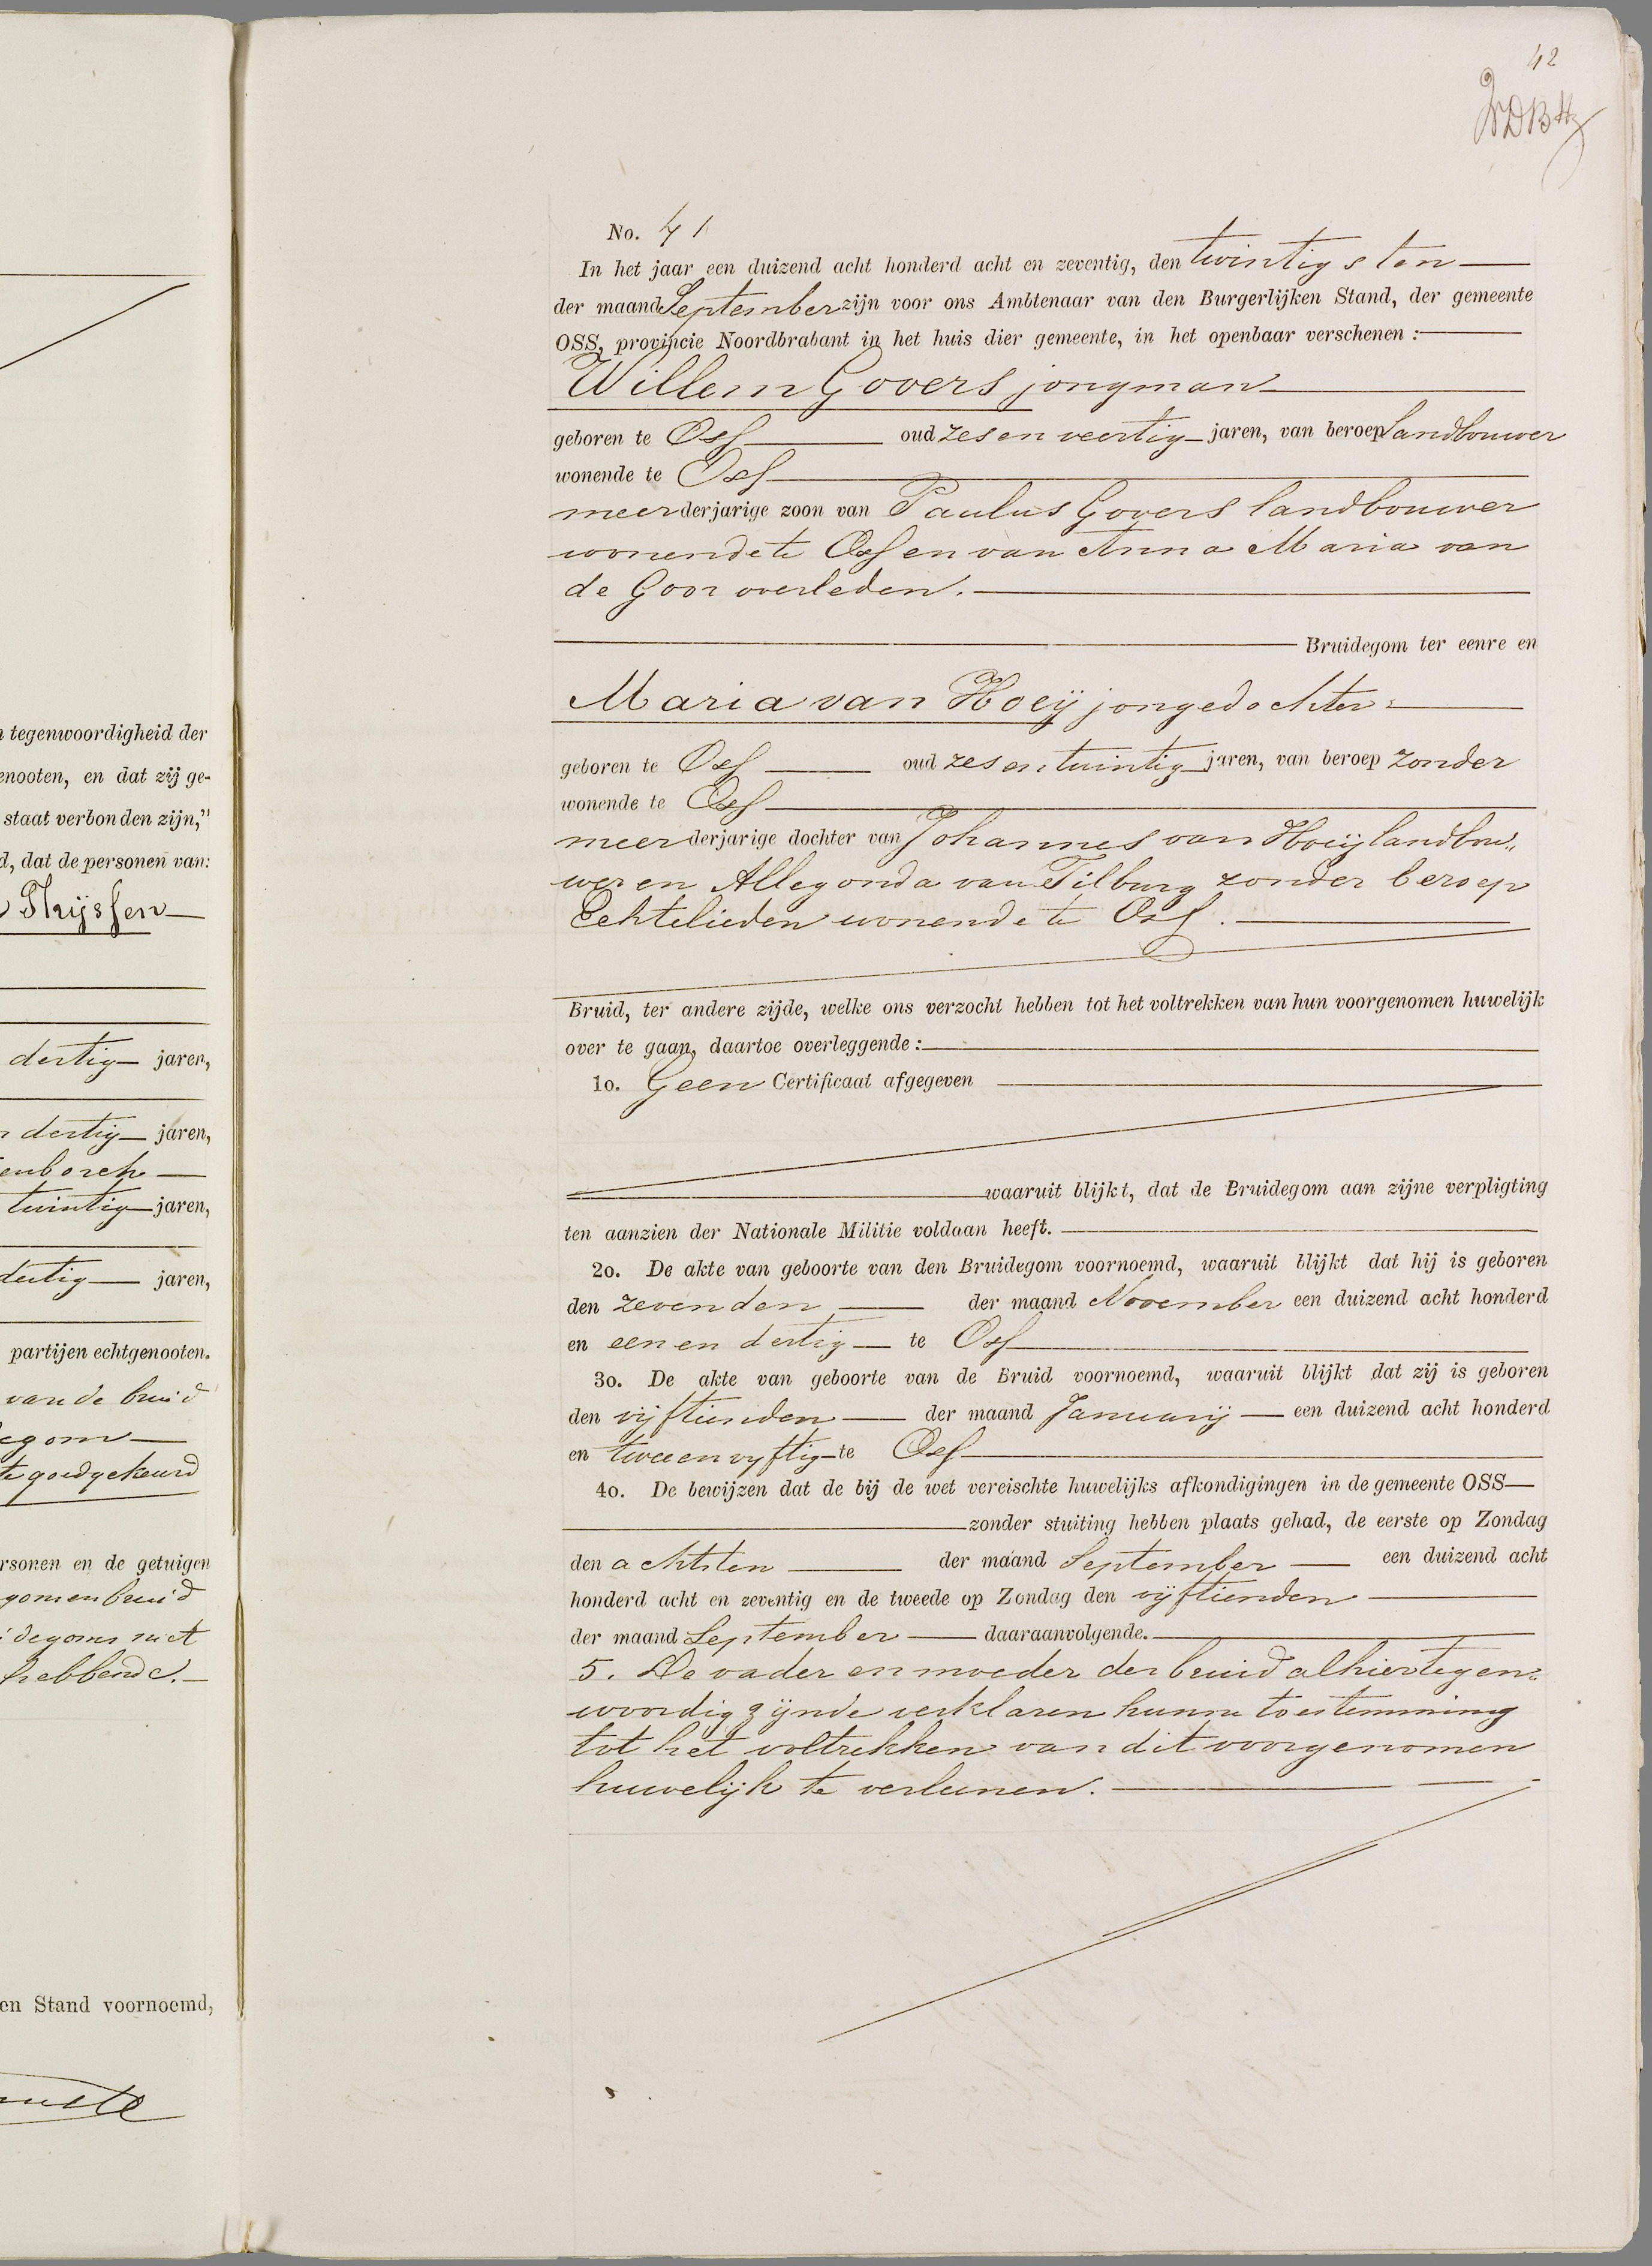 42
No. 41
In het jaar een duizend acht honderd acht en zeventig, den twintigsten
der maand September zijn voor ons Ambtenaar van den Burgerlijken Stand, der gemeente
OSS, provincie Noordbrabant in het huis dier gemeente, in het openbaar verschenen :
Willem Govers jongman
geboren te Oss oud zesenveertig jaren, van beroep landbouwer
wonende te Oss
meerderjarige zoon van Paulus Govers landbouwer
wonende te Oss en van Anna Maria van
de Goor overleden.
Bruidegom ter eenre en
Maria van Hoeij jongedochter
geboren te Oss oud zesentwintig jaren, van beroep zonder
wonende te Oss
meerderjarige dochter van Johannes van Hoeij landbou„
wer en Allegonda van Tilburg zonder beroep
Echtelieden wonende te Oss.
Bruid, ter andere zijde, welke ons verzocht hebben tot het voltrekken van hun voorgenomen huwelijk
over te gaan, daartoe overleggende :
1o. Geen Certificaat afgegeven
waaruit blijkt, dat de Bruidegom aan zijne verpligting
ten aanzien der Nationale Militie voldaan heeft.
2o. De akte van geboorte van den Bruidegom voornoemd, waaruit blijkt dat hij is geboren
den zevenden der maand November een duizend acht honderd
en eenendertig te Oss
3o. De akte van geboorte van de Bruid voornoemd, waaruit blijkt dat zij is geboren
den vijftienden der maand Januarij een duizend acht honderd
en tweeenvyftig te Oss
4o. De bewijzen dat de bij de wet vereischte huwelijks afkondigingen in de gemeente OSS
zonder stuiting hebben plaats gehad, de eerste op Zondag
den achtsten der maand September een duizend acht
honderd acht en zeventig en de tweede op Zondag den vijftienden
der maand September daaraanvolgende.
5. De vader en moeder der bruid alhier tegen„
woordig zijnde verklaren hunne toestemming
tot het voltrekken van dit voorgenomen
huwelijk te verleenen.
tegenwoordigheid der
enooten, en dat zij ge-
staat verbonden zijn,"
d, dat de personen van:
Thijssen
dertig jaren,
dertig jaren,
enborch
twintig jaren,
dertig jaren,
partijen echtgenooten.
van de bruid
egom
te goedgekeurd
rsonen en de getuigen
gom en bruid
idegoms niet
hebbende.
en Stand voornoemd,